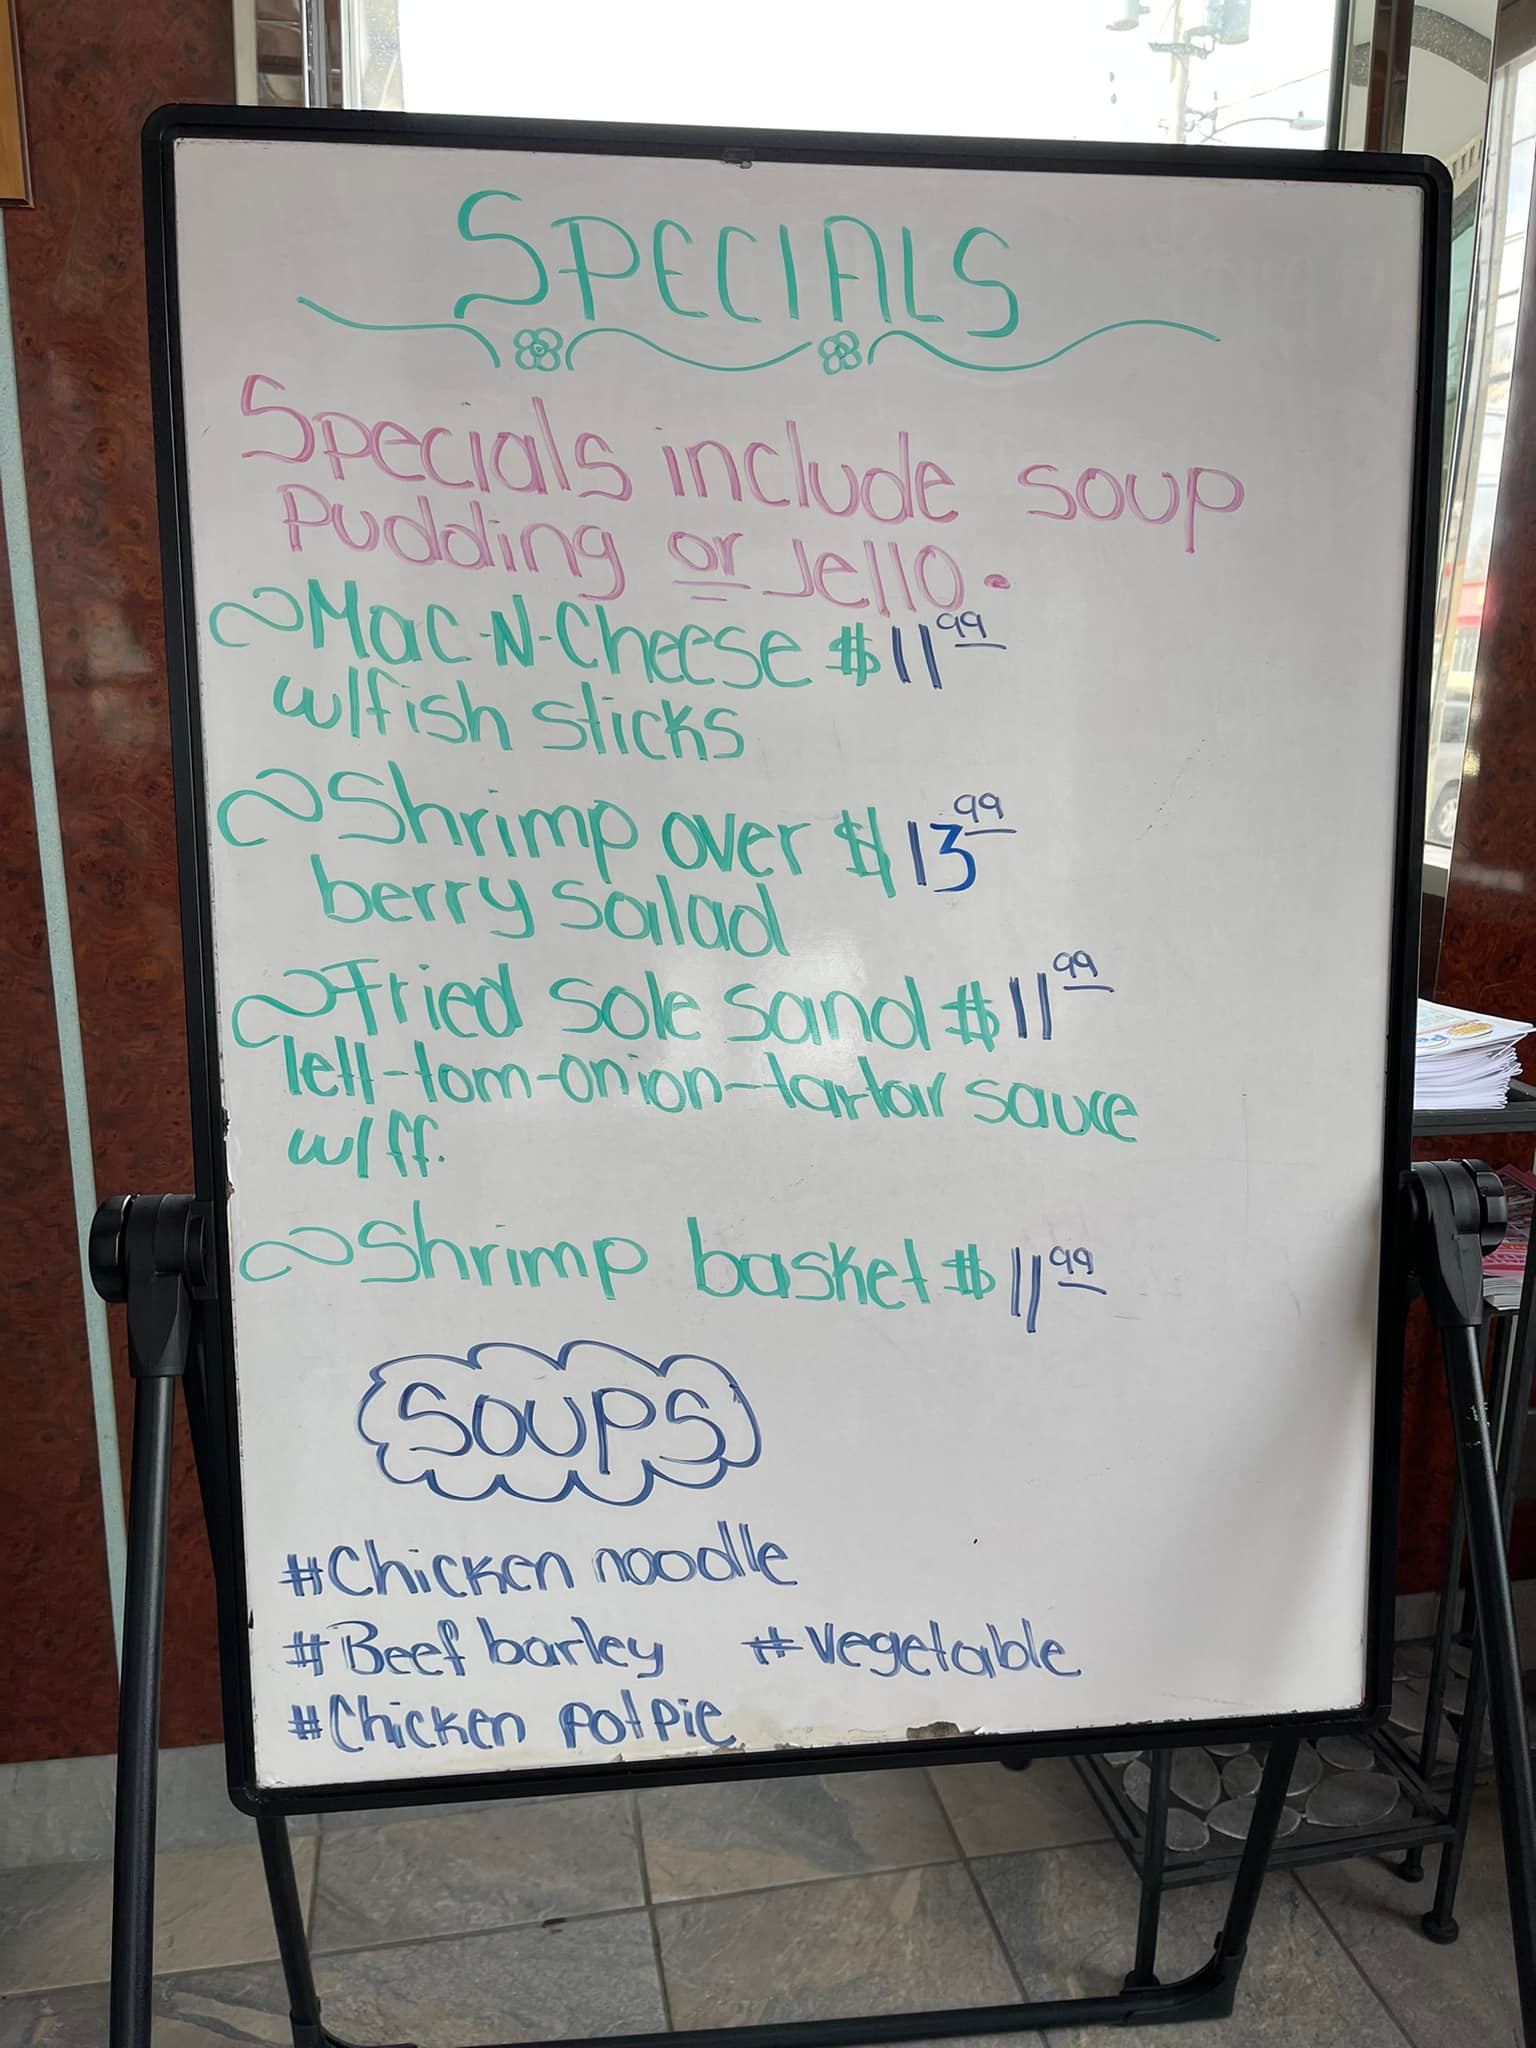 SPECIALS
Specials include soup
Pudding or Jello.
~Mac-N-Cheese $11 99
w/fish sticks
~Shrimp over $13 99
berry salad
~Fried sole sand $11 99
lett-tom-onion-tartar sauce
w/ff.
~Shrimp basket $11 99
SOUPS
#Chicken noodle
#Beef barley #vegetable
#Chicken potpie